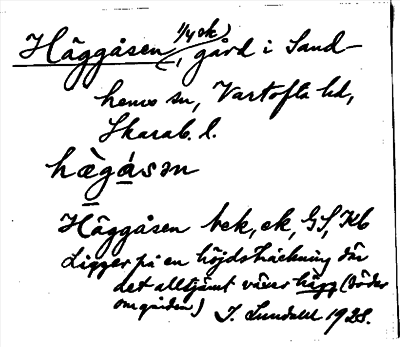 Häggåsen (1/4 ek), gård i Sand-
hems sn, Vartofta hd,
Skarab. l.
hägåsən
Häggåsen bek, ek, GS, Kb
Ligger på en höjdsträckning där
det alltjämt växer hägg (söder
om gården) I. Lundahl 1928.